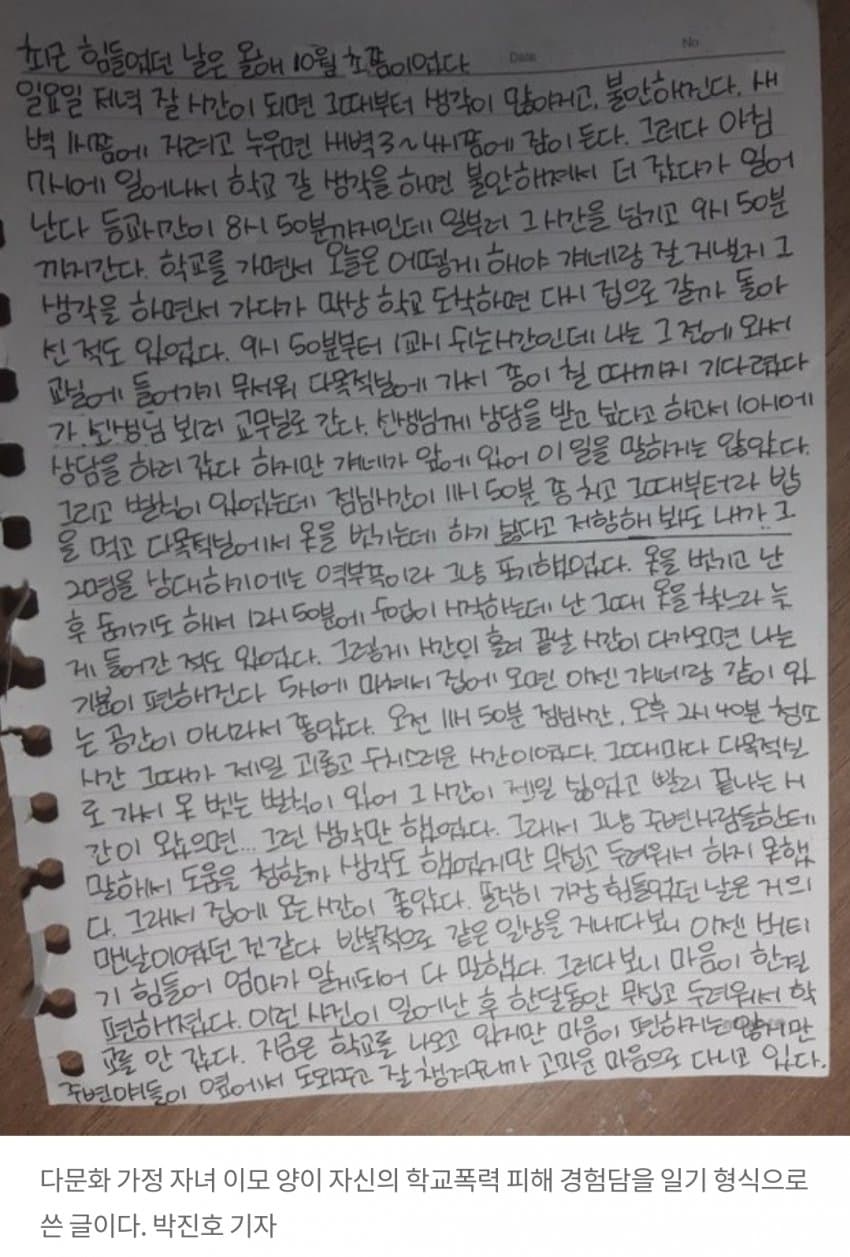 No
Date
최근 힘들었던 날은 올해 10월 초쯤이었다
일요일 저녁 잘 시간이 되면 그때부터 생각이 많아지고, 불안해진다. 새
벽 1시쯤에 자려고 누우면 새벽 3~4시쯤에 잠이 든다. 그러다 아침
7시에 일어나서 학교 갈 생각을 하면 불안해져서 더 잤다가 일어
난다 등교시간이 8시 50분까지인데 일부러 그 시간을 넘기고 9시 50분
까지간다. 학교를 가면서 오늘은 어떻게 해야 걔네랑 잘 지낼지 그
생각을 하면서 가다가 막상 학교 도착하면 다시 집으로 갈까 돌아
선 적도 있었다. 9시 50분부터 1교시 쉬는시간인데 나는 그 전에 와서
교실에 들어가기 무서워 다목적실에 가서 종이 칠 때까지 기다렸다
가 선생님 보러 교무실로 간다. 선생님께 상담을 받고 싶다고 하고서 10시에
상담을 하러 갔다 하지만 걔네가 앞에 있어 이 일을 말하지는 않았다.
그리고 벌칙이 있었는데 점심시간이 11시 50분 종 치고 그때부터라 밥
을 먹고 다목적실에서 옷을 벗기는데 하기 싫다고 저항해 봐도 내가 그
20명을 상대하기에는 역부족이라 그냥 포기했었다. 옷을 벗기고 난
후 숨기기도 해서 12시 50분에 수업이 시작하는데 난 그때 옷을 찾느라 늦
게 들어간 적도 있었다. 그렇게 시간이 흘러 끝날 시간이 다가오면 나는
기분이 편해진다 5시에 마쳐서 집에 오면 이젠 걔네랑 같이 있
는 공간이 아니라서 좋았다. 오전 11시 50분 점심시간, 오후 2시 40분 청소
시간 그때가 제일 괴롭고 수치스러운 시간이였다. 그때마다 다목적실
로 가서 옷 벗는 벌칙이 있어 그 시간이 젤일 싫었고 빨리 끝나는 시
간이 왔으면... 그런 생각만 했었다. 그래서 그냥 주변사람들한테
말해서 도움을 청할까 생각도 했었지만 무섭고 두려워서 하지 못했
다. 그래서 집에 오는 시간이 좋았다. 솔직히 가장 힘들었던 날은 거의
맨날이였던 것 같다 반복적으로 같은 일상을 지내다보니 이젠 버티
기 힘들어 엄마가 알게되어 다 말했다. 그러다 보니 마음이 한결
편해졌다. 이런 사건이 일어난 후 한달동안 무섭고 두려워서 학
교를 안 갔다. 지금은 학교를 나오고 있지만 마음이 편하지는 않지만
주변애들이 옆에서 도와주고 잘 챙겨주니까 고마운 마음으로 다니고 있다.
다문화 가정 자녀 이모 양이 자신의 학교폭력 피해 경험담을 일기 형식으로
쓴 글이다. 박진호 기자